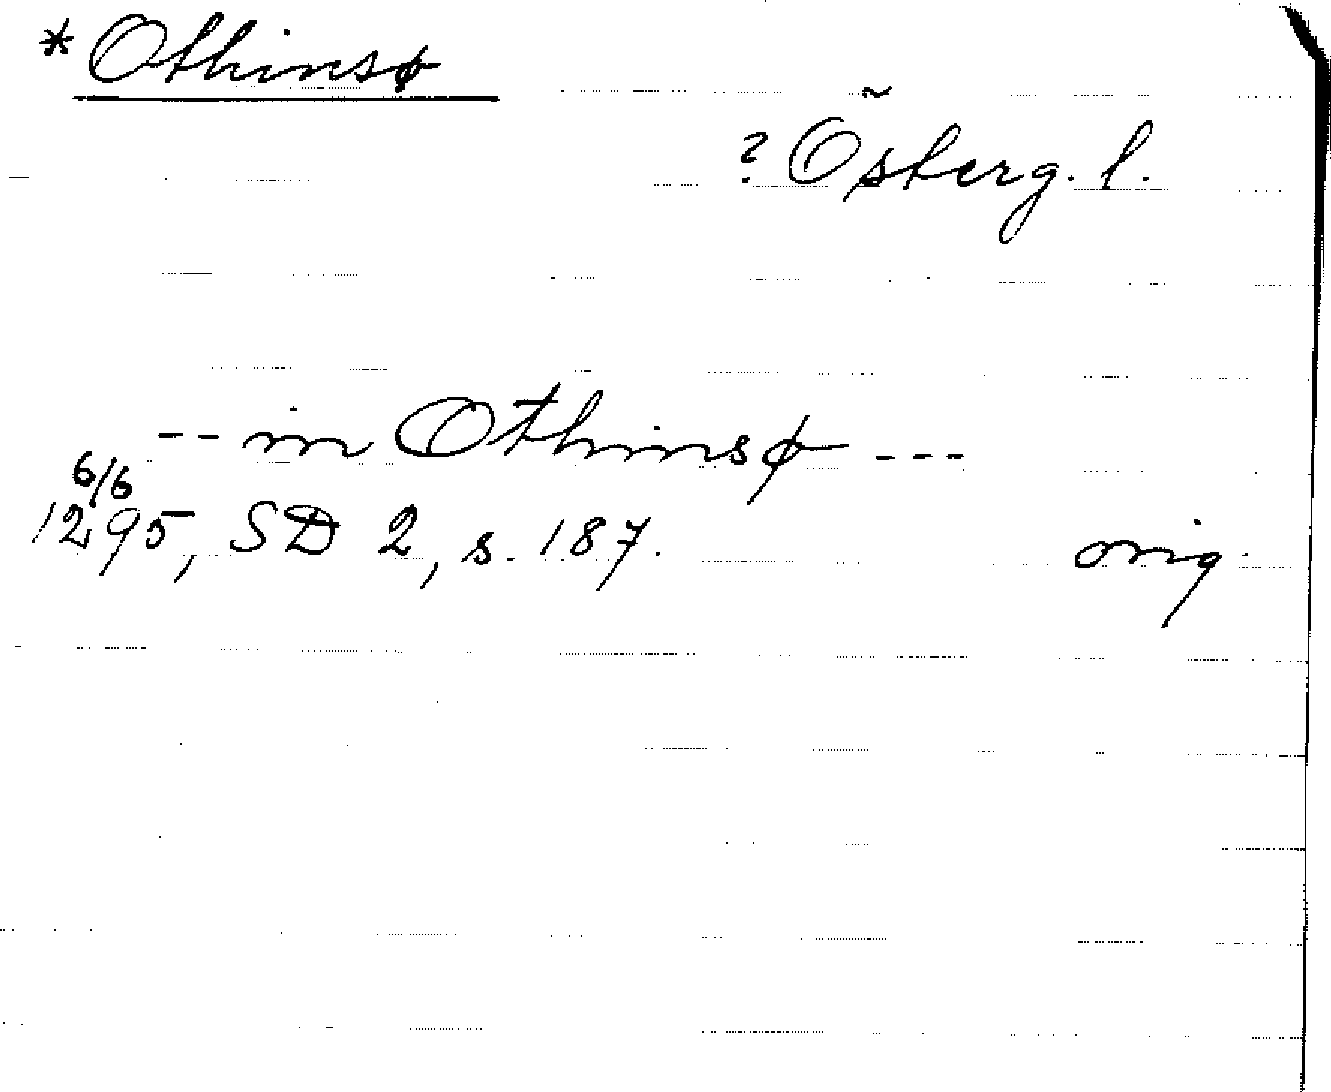 *Othinsø
? Österg. l.
-- in Othinsø ---
6/6
1295, SD 2, s. 187. orig.